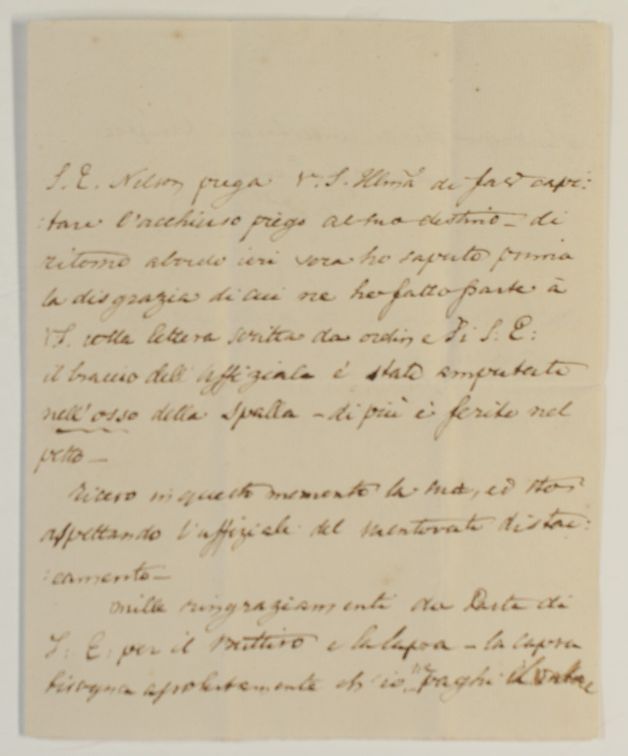 S. E. Nelson prega V. S. Illma di far capi:
:tare l'acchiuso piego al suo destino – di
ritorno a bordo ieri sera ho saputo prima
la disgrazia di cui ne ho fatto parte à
VS. colla lettera scritta da ordine di S: E:
il braccio dell'Affiziale è stato amputato
nell'osso della spalla – di più è ferito nel
petto –
ricevo in questo momento la sua, ed sto
aspettando l'uffiziale del mentovato distac:
:camento –
mille ringraziamenti da Parte di
S: E: per il Buttiro e la capra – la capra
bisogna assolutamente ch'io ne paghi il valore